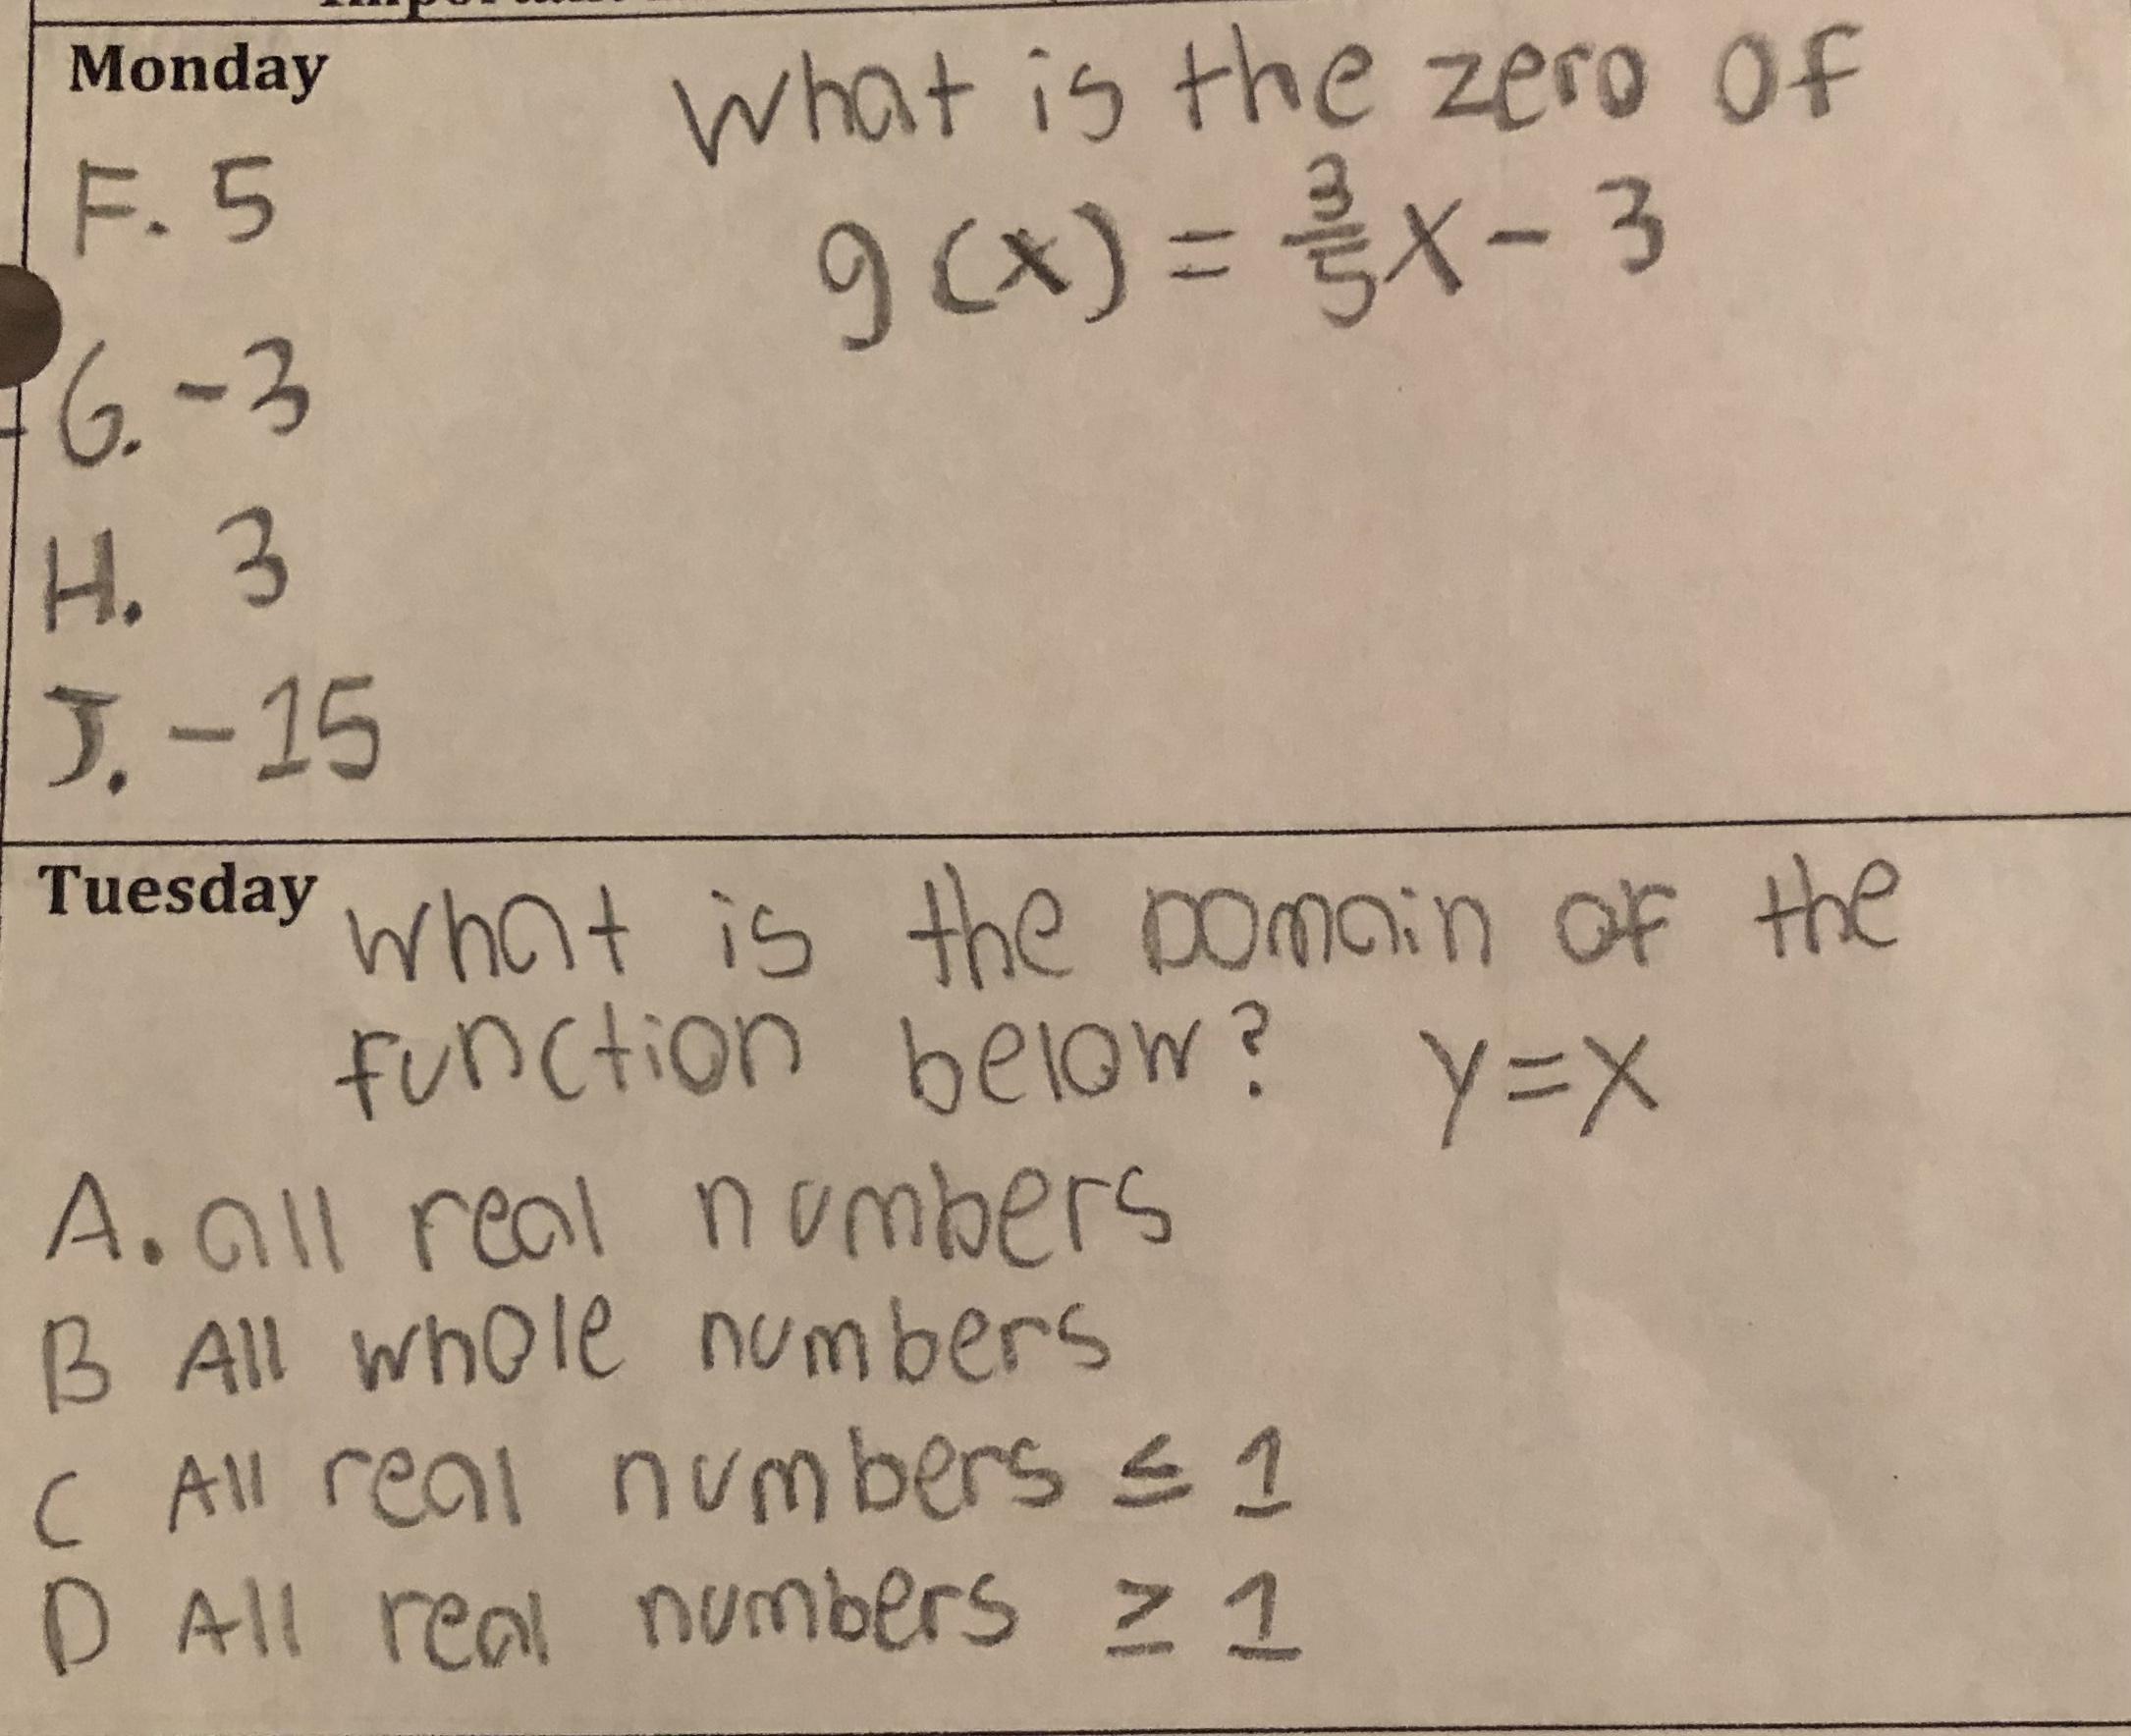 Monday
What is the zero of
F. 5
g(x) = 3/5 x - 3
G. -3
H. 3
J. -15
Tuesday
What is the Domain of the
function below? y=x
A. all real numbers
B All whole numbers
C All real numbers ≤ 1
D All real numbers ≥ 1